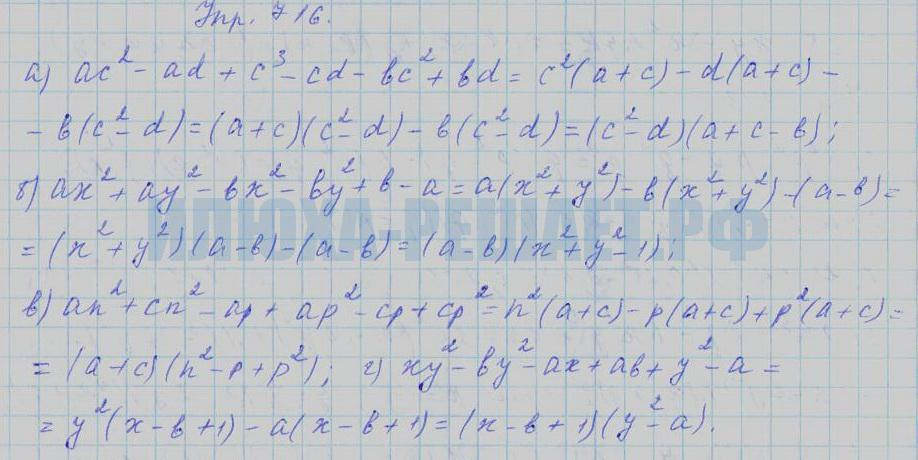 Упр. 716.
а) ac² - ad + c³ - cd - bc² + bd = c²(a+c) - d(a+c) -
- b(c² - d) = (a+c)(c² - d) - b(c² - d) = (c² - d)(a+c-b);
б) ax² + ay² - bx² - by² + b - a = a(x² + y²) - b(x² + y²) - (a-b) =
ИЛЮХА-РЕШАЕТ.РФ
= (x² + y²)(a-b) - (a-b) = (a-b)(x² + y² - 1);
в) an² + cn² - ap + ap² - cp + cp² = n²(a+c) - p(a+c) + p²(a+c) =
= (a+c)(n² - p + p²); г) xy² - by² - ax + ab + y² - a =
= y²(x-b+1) - a(x-b+1) = (x-b+1)(y² - a).